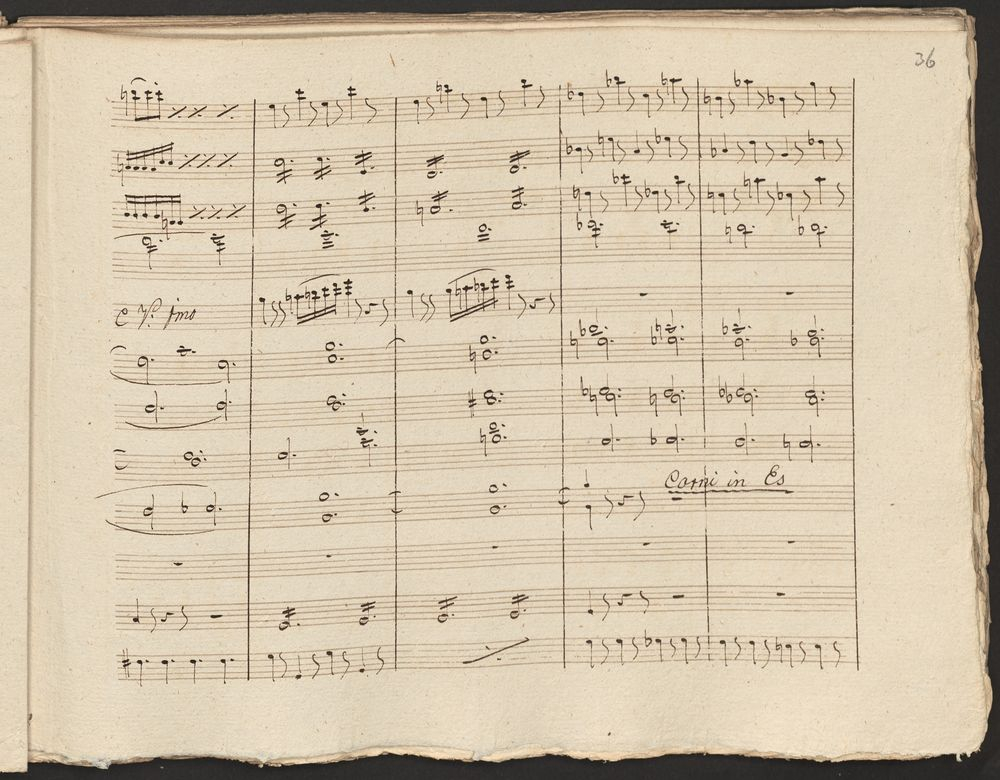 36
Corni in Es